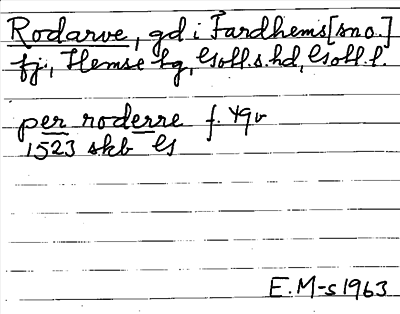 Rodarve, gd i Fardhems [sno.]
fj., Hemse hg, Gotl. s. hd, Gotl. l.
per roderre f. 49v
1523 skb G
E. M-s 1963